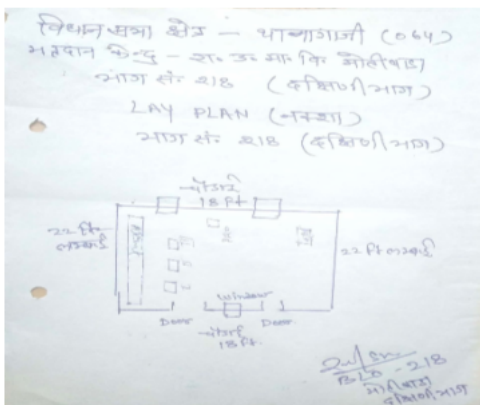 विधान सभा क्षेत्र - थानागाजी (064)
मतदान केन्द्र - रा. उ. मा. वि. मोलीबाडा
भाग सं. 218 (दक्षिणी भाग)
LAY PLAN (नक्शा)
भाग सं. 218 (दक्षिणी भाग)
चौडाई
18 ft
22 ft
लम्बाई
22 ft लम्बाई
Window
Door
Door
चौडाई
18 ft.
BLO - 218
मोलीबाडा
दक्षिणी भाग